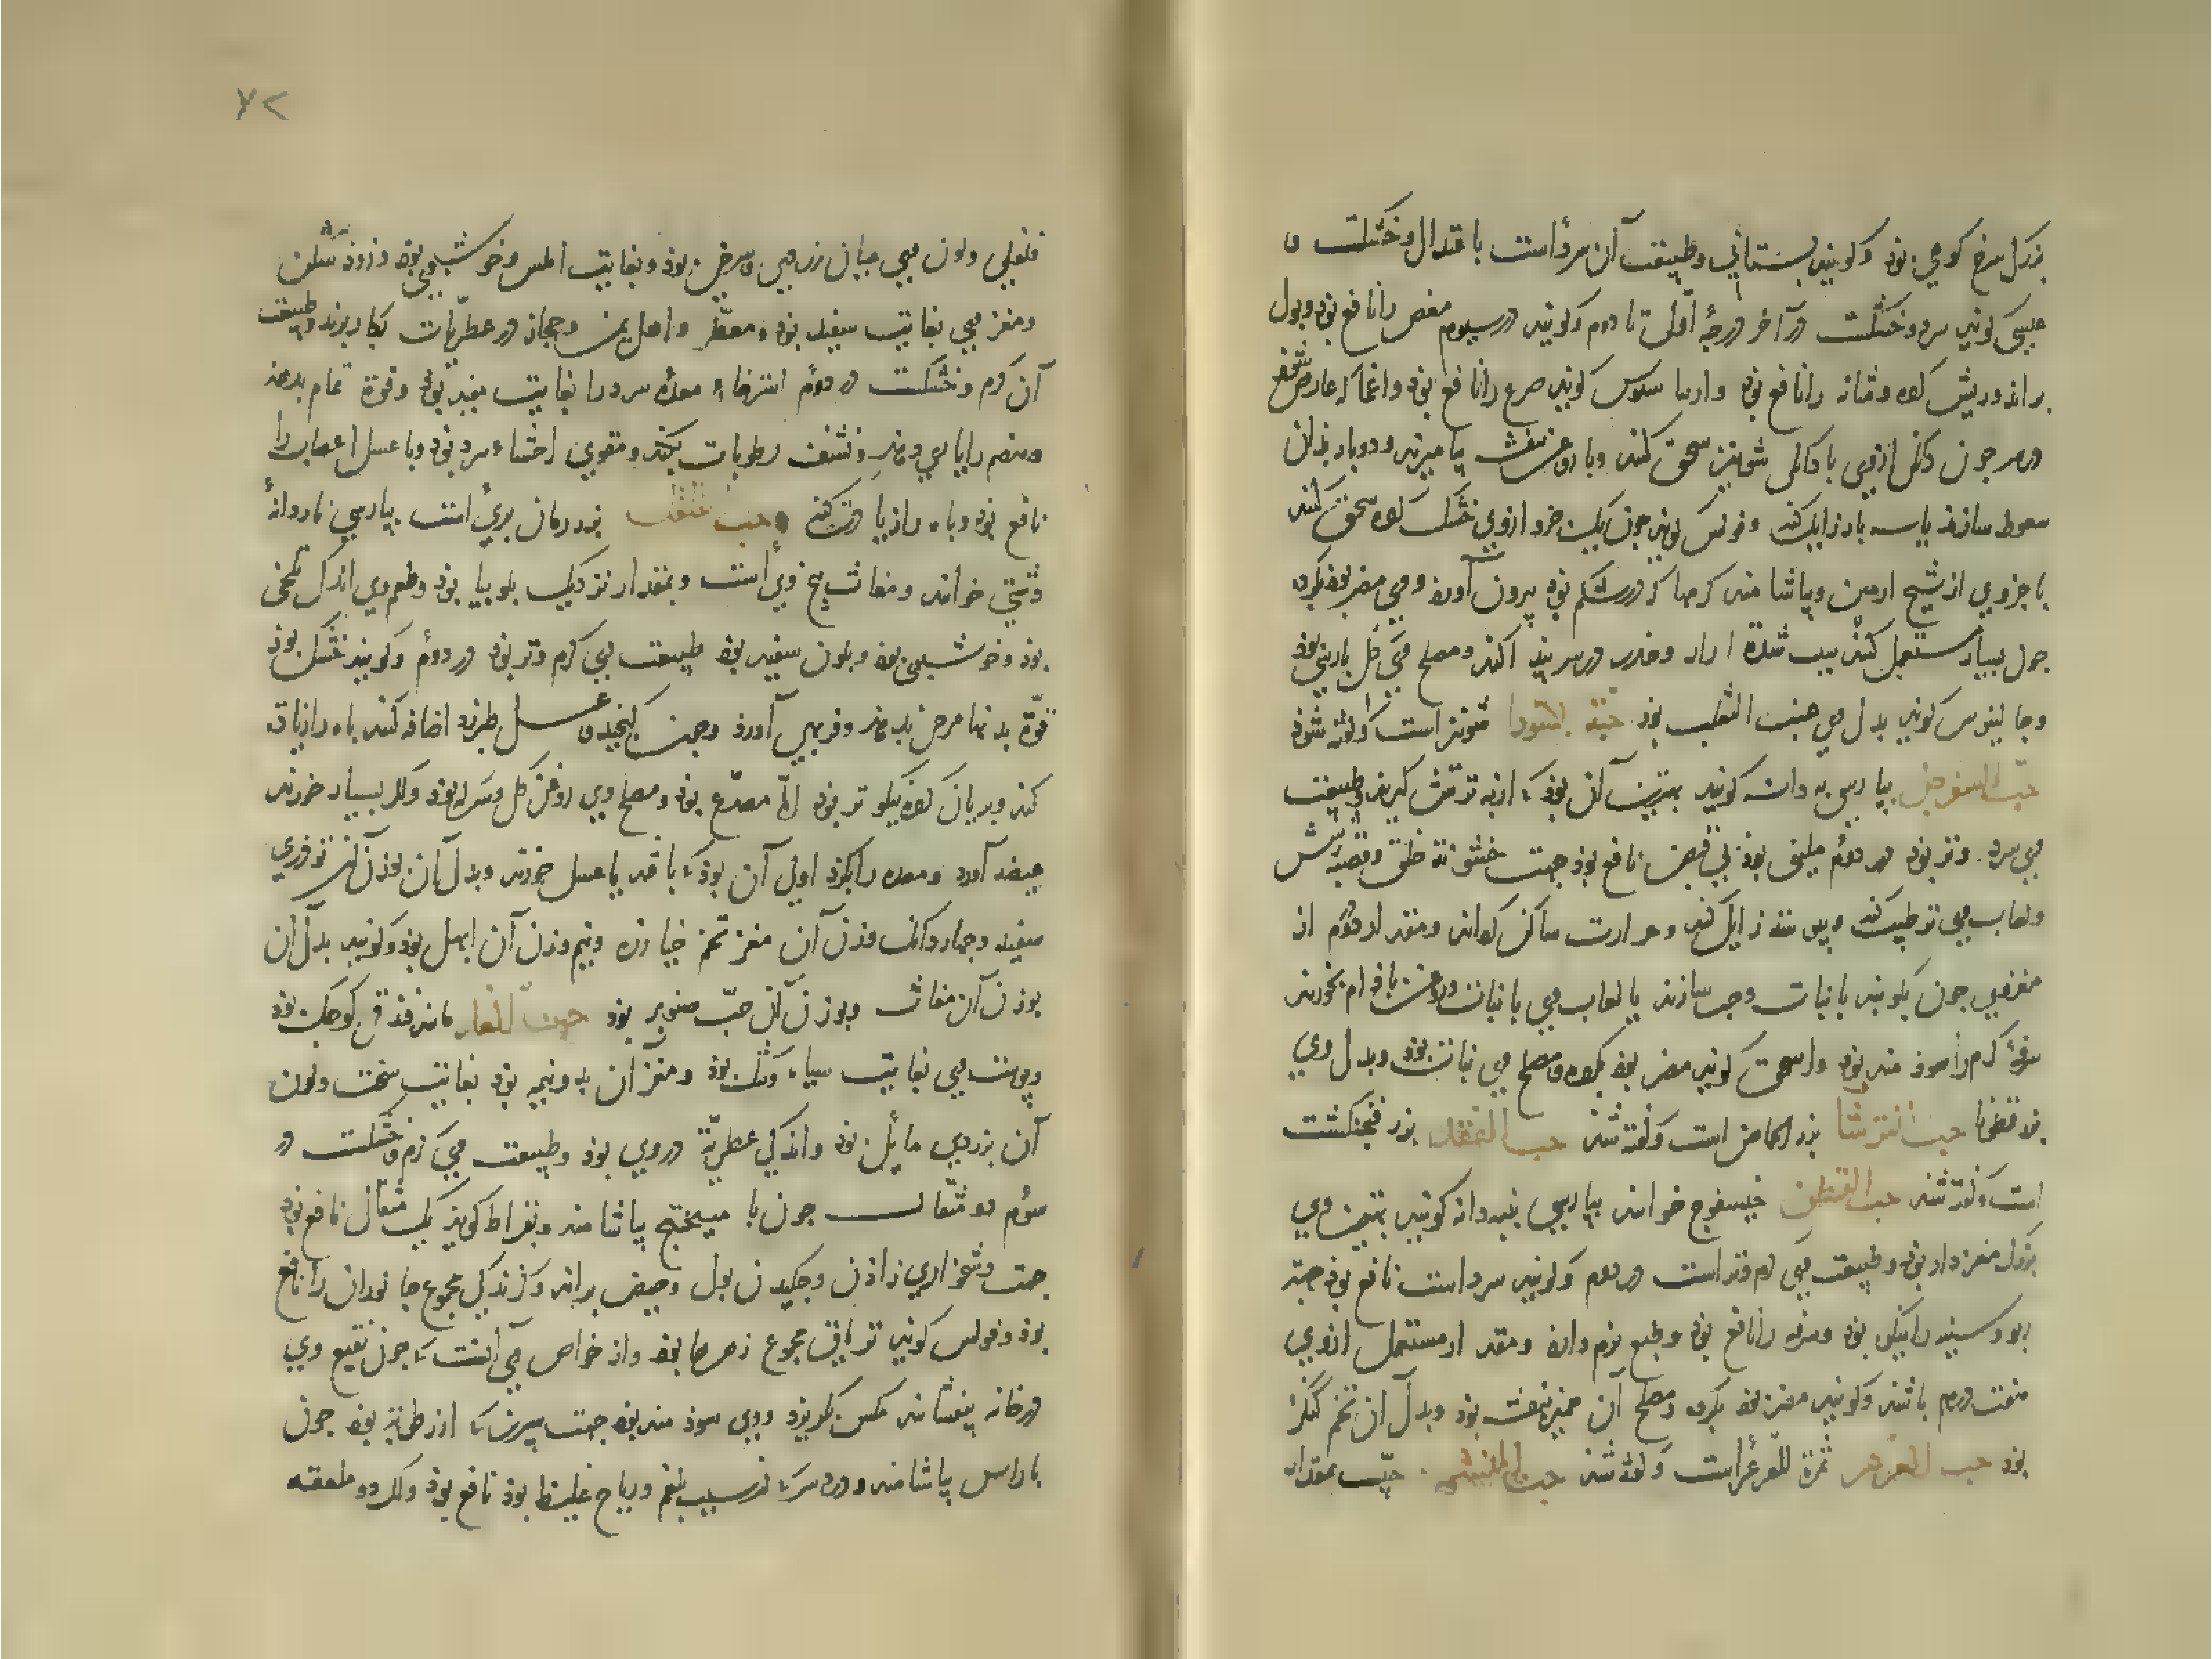 بزرکل سرخ کوهی بوذ و کویند بستانی و طبیعت آن سرد است باعتدال و خشکست و
عیسی کویند سرد و خشکست در آخر درجهٔ اول تا دوم و کویند در سیوم مغص را نافع بوذ و بول
براند و ریش کرده و مثانه را نافع بوذ و کویند صرع را نافع بوذ
چون دانکی از وی با دانکی شونیز سحق کنند و با روغن بنفشه بیامیزند و دو بار بدان
سعوط سازند یا سه بار زایل کند و فولس کویند چون یک جزو از وی خشک کرده سحق کنند
با جزوی از شیح ارمن و بیاشامند کرمها که در شکم بوذ بیرون آورد و وی مضر بوذ بکرده
چون بسیار مستعمل کنند و مصلح وی
و جالینوس کویند بدل وی عنب الثعلب بوذ حبة السودا شونیز است و کفته شوذ
حب السفرجل بپارسی به دانه کویند بهترین آن بوذ که از به ترش کیرند و طبیعت
وی سرد و تر بوذ در دوم ملین بوذ بی قبض نافع بوذ جهت خشونة حلق و قصبه شش
و لعاب وی ترطیب کند و یبوسة زایل کند و حرارت ساکن کرداند و مقدار دو درم از
مغز وی چون بکوبند با نبات و حب سازند یا لعاب وی با نبات و روغن بادام بخورند
سرفهٔ کرم را سوذمند بوذ و اسحق کویند مضر بوذ بکرده و مصلح وی نبات بوذ و بدل وی
بزرقطونا حب الترشا بزر الحماض است و کفته شد حب الفقد بزر فنجنکشت
است و کفته شد حب القطن خیسفوج خوانند بپارسی پنبه دانه کویند بهترین وی
بزرک مغزدار بوذ و طبیعت وی کرم و تر است در دوم و کویند سرد است نافع بوذ جهة
ربو و سینه را نیکو بوذ و سرفه را نافع بوذ و طبع نرم دارد و مقدار مستعمل از وی
هفت درم باشد و کویند مضر بوذ بکرده و مصلح آن خمیر بنفشه بوذ و بدل آن تخم کنکر
بوذ حب العرعر ثمرة العرعر است و کفته شد حب المنشم حبی بمقدار
فلفلی و لون وی میان زردی و سرخی بوذ و بغایت املس و خوشبوی بوذ و زوذ شکن
و مغز وی بغایت سفید بوذ و معطر و اهل یمن و حجاز در عطریات بکار برند و طبیعت
آن کرم و خشکست در دوم استرخاء معده سرد را بغایت مفید بوذ و قوة تمام بدهد
و هضم را یاری دهد و نشف رطوبات بکند و مقوی احشاء سرد بوذ و با عسل اعصاب را
نافع بوذ و باه را زیادت کند حب القلقل بزر رمان بری است بپارسی ناردانهٔ
دشتی خوانند و مغاث بیخ وی است و بمقدار نزدیک بلوبیا بوذ و طعم وی اندکی تلخی
بوذ و خوشبوی بوذ و بلون سفید بوذ طبیعت وی کرم و تر بوذ در دوم و کویند خشک بوذ
قوة بدنها مرض بدهد و فربهی آورد و چون کنجید و عسل طبرزد اضافه کنند باه را زیادة
کند و بریان کرده نیکوتر بوذ اما مصدع بوذ و مصلح وی روغن کل و سرکه بوذ و اکر بسیار خورند
هیضه آورد و معده را بکزد اولی آن بوذ که با قند یا عسل خورند و بدل آن بوزن آن توذری
سفید و چهار دانک وزن آن مغز تخم خیارزه و نیم وزن آن ابهل بوذ و کویند بدل آن
بوزن آن مغاث و بوزن آن حب صنوبر بوذ حب الغار مانند فندقی کوچک بوذ
و پوست وی بغایت سیاه و تنک بوذ و مغز آن بدونیمه بوذ بغایت سخت و لون
آن بزردی مایل بوذ و اندکی عطریة در وی بوذ و طبیعت وی کرم و خشکست در
سوم دو مثقال چون با میبختج بیاشامند و بقراط کویند یک مثقال نافع بوذ
جهت دشخواری زاذن و چکیدن بول و حیض براند و کزندکی مجموع جانوران را نافع
بوذ و فولس کویند تریاق مجموع زهرها بوذ و از خواص وی آنست که چون نقیع وی
در خانه بیفشانند مکس بکریزد و وی سوذمند بوذ جهت سپرز که از رطوبة بوذ چون
با راسن بیاشامند و درد سر که از سبب بلغم و ریاح غلیظ بوذ نافع بوذ و اکر دو ملعقه